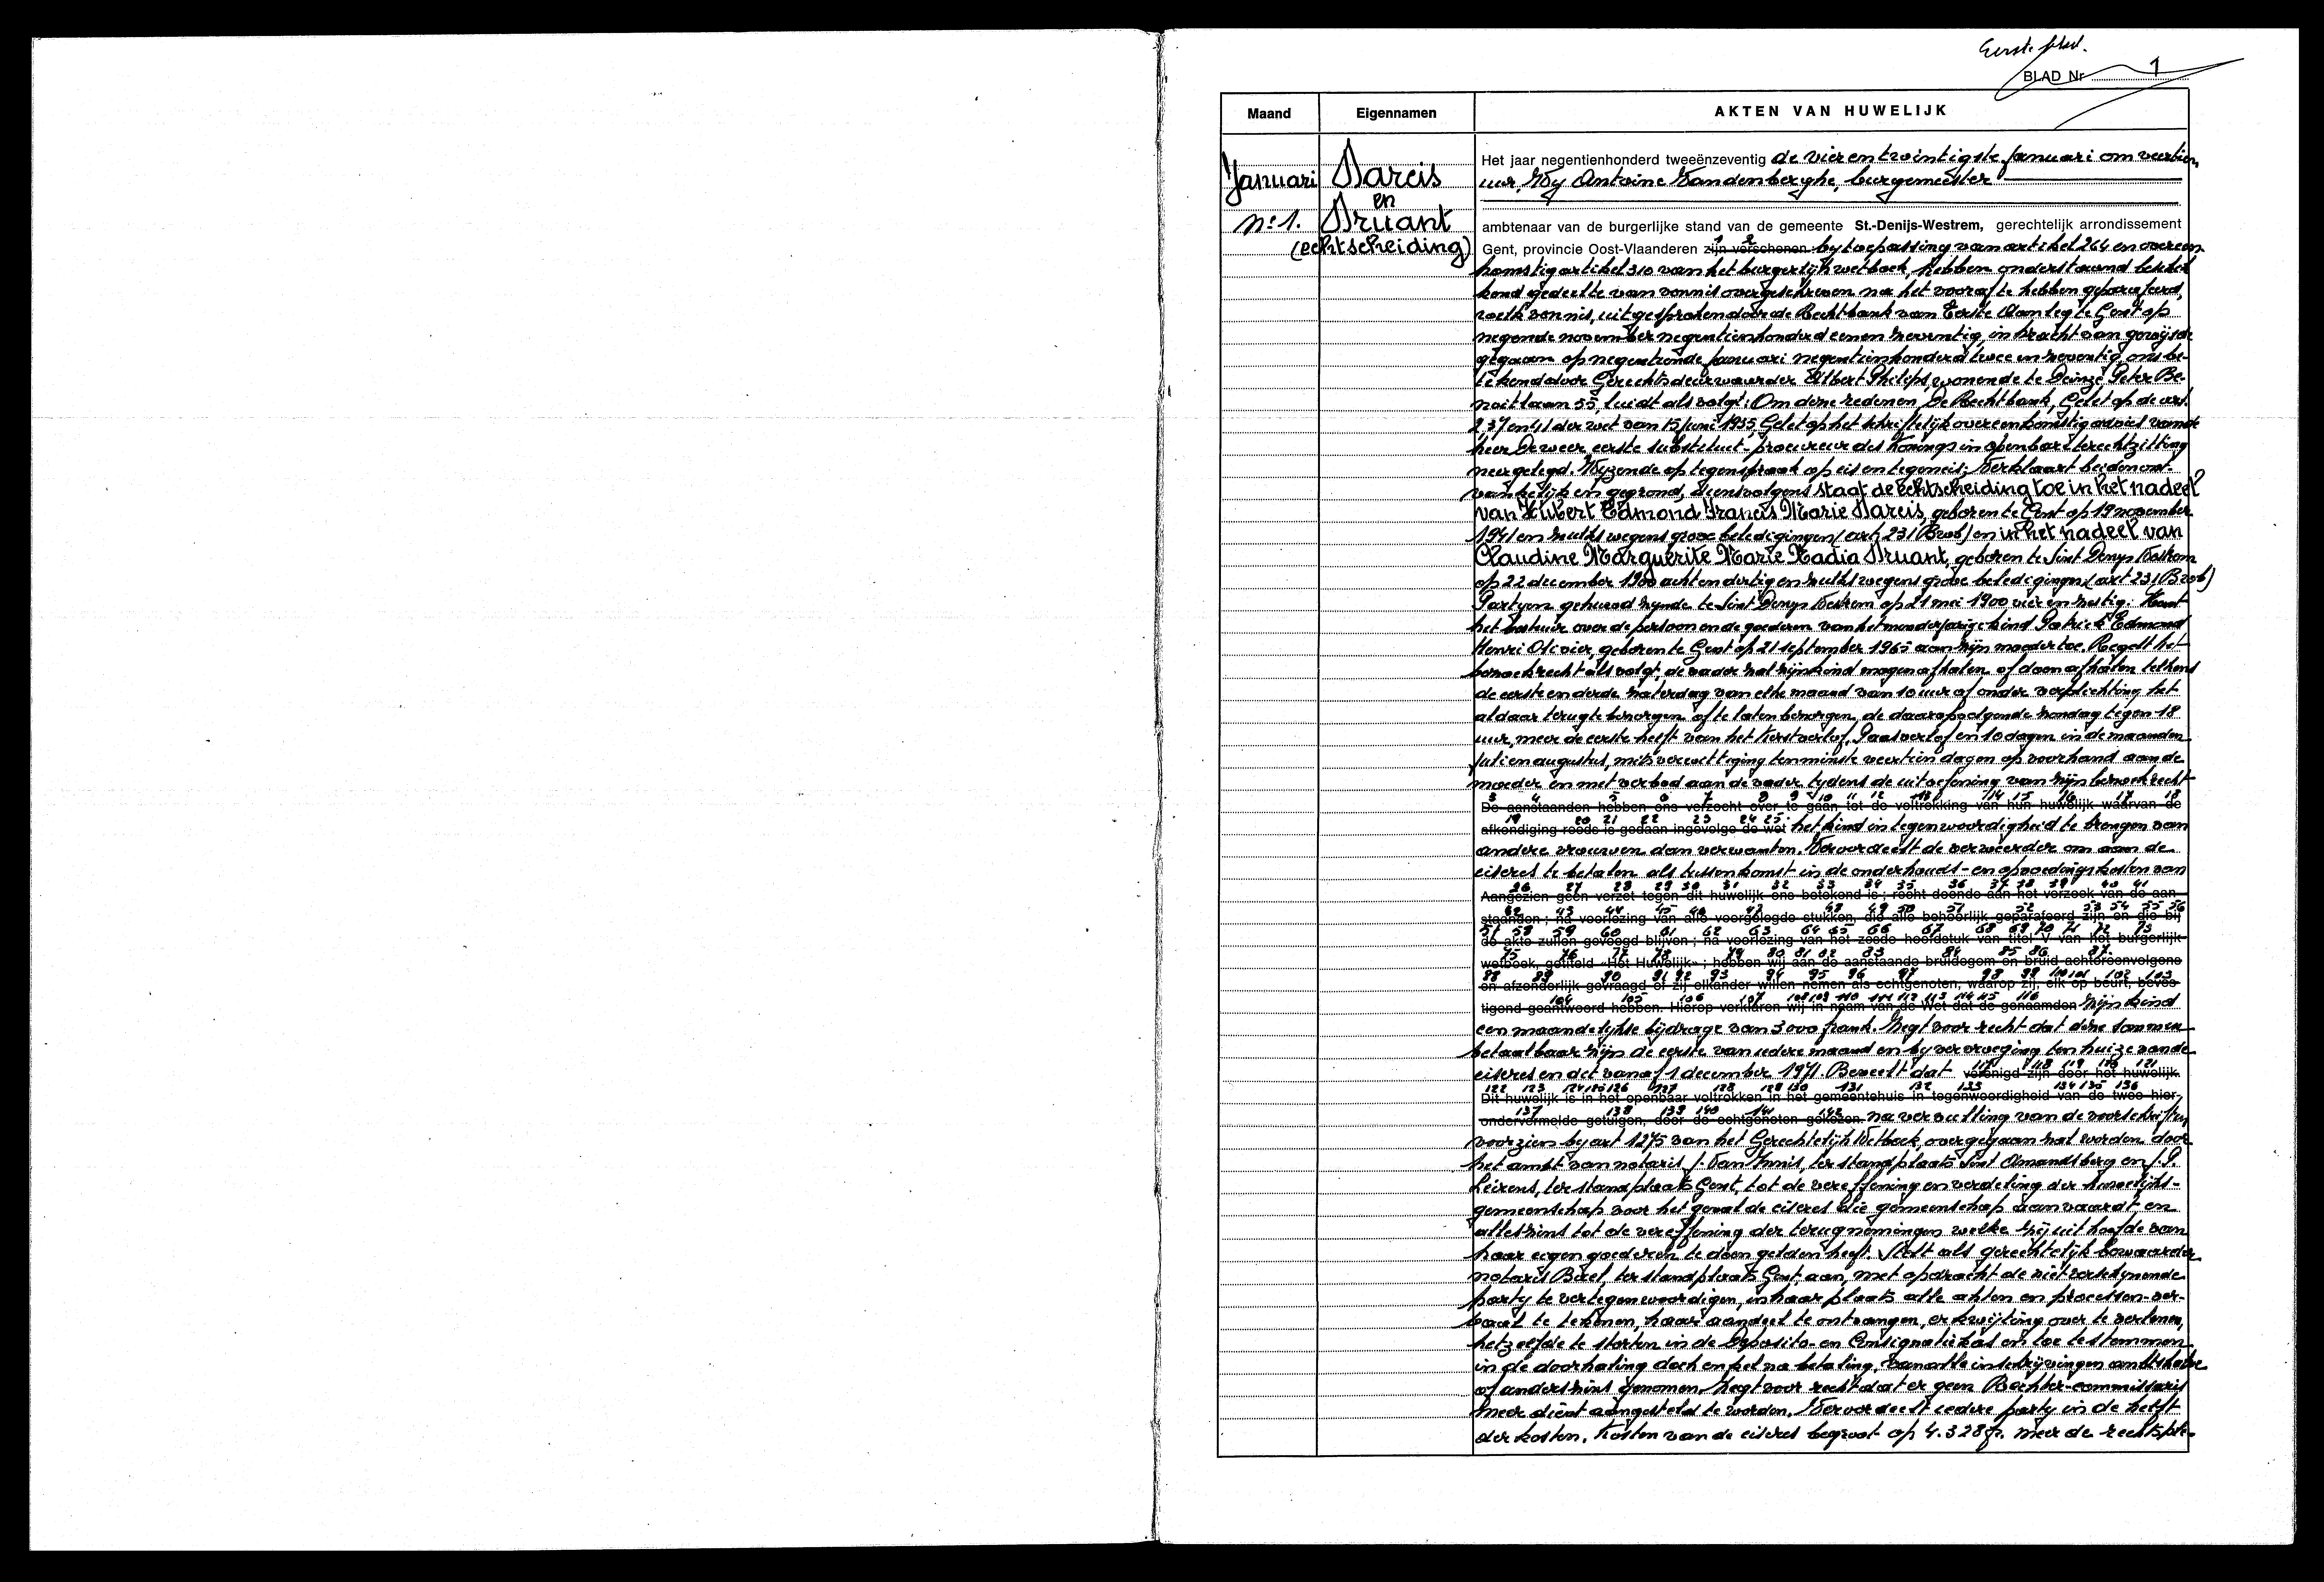 Eerste blad.
BLAD Nr 1
Maand Eigennamen AKTEN VAN HUWELIJK
Januari
n° 1.
en
(echtscheiding)
Het jaar negentienhonderd tweeënzeventig de vierentwintigste Januari om veertien
uur, Wy Antoine Vandenberghe, burgemeester
ambtenaar van de burgerlijke stand van de gemeente St.-Denijs-Westrem, gerechtelijk arrondissement
Gent, provincie Oost-Vlaanderen zijn verschenen by toepassing van artikel 264 en overeen
komstig artikel 310 van het burgerlijk wetboek, hebben onderstaand beschik
kend gedeelte van vonnis overgeschreven na het vooraf te hebben geparafeerd,
welk vonnis, uitgesproken door de Rechtbank van Eerste Aanleg te Gent op
negende november negentienhonderd eenen zeventig, in kracht van gewijsde
gegaan op negentiende Januari negentienhonderd twee en zeventig, ons be-
tekend door Gerechtsdeurwaarder Albert Philips, wonende te Deinze Peter Be-
noitlaan 55, luidt als volgt: Om deze redenen, De Rechtbank, Gelet op de art.
2, 37 en 41 der wet van 15 juni 1935, Gelet op het schriftelijk overeenkomstig advies van de
heer Deweer eerste substituut-procureur des Konings in openbare terechtzitting
neergelegd. Wyzende op tegenspraak op eis en tegeneis; Verklaart beiden ont-
vankelijk en gegrond, dienvolgens staat de echtscheiding toe in het nadeel
van Hubert Edmond Francis Marie geboren te Gent op 19 november
1941 en zulks wegens grove beledigingen (art. 231 B.wb) en in het nadeel van
Claudine Marguerite Marie Nadia geboren te Sint Denys Westrem
op 22 december 1900 acht en dertig en zulks wegens grove beledigingen (art 231 B.wb)
Partyen gehuwd zynde te Sint Denys Westrem op 21 mei 1900 vier en zestig. Kent
het bestuur over de persoon en de goederen van het minderjarige kind Patrick Edmond
Henri Olivier, geboren te Gent op 21 september 1965 aan zijn moeder toe. Regelt het
bezoekrecht als volgt: de vader zal zijn kind mogen afhalen of doen afhalen telkens
de eerste en derde zaterdag van elke maand van 10 uur af onder verplichting het
aldaar terug te bezorgen of te laten bezorgen de daaropvolgende zondag tegen 18
uur, meer de eerste helft van het Kerstverlof, Paasverlof en 10 dagen in de maanden
Juli en augustus, mits verwittiging tenminste veertien dagen op voorhand aan de
moeder en met verbod aan de vader tydens de uitoefening van zijn bezoekrecht
3 4 5 6 7 8 9 10 11 12 13 14 15 16 17 18
De aanstaanden hebben ons verzocht over te gaan tot de voltrekking van hun huwelijk waarvan de
19 20 21 22 23 24 25
afkondiging reeds is gedaan ingevolge de wet het kind in tegenwoordigheid te brengen van
andere vrouwen dan verwanten. Veroordeelt de verweerder om aan de
eiseres te betalen als tussenkomst in de onderhouds- en opvoedingskosten van
26 27 28 29 30 31 32 33 34 35 36 37 38 39 40 41
Aangezien geen verzet tegen dit huwelijk ons betekend is ; recht doende aan het verzoek van de aan-
42 43 44 45 46 47 48 49 50 51 52 53 54 55 56
staanden ; na voorlezing van alle voorgelegde stukken, die alle behoorlijk geparafeerd zijn en die bij
57 58 59 60 61 62 63 64 65 66 67 68 69 70 71 72 73
de akte zullen gevoegd blijven ; na voorlezing van het zesde hoofdstuk van titel V van het burgerlijk
75 76 77 78 79 80 81 82 83 84 85 86 87
wetboek, getiteld «Het Huwelijk» ; hebben wij aan de aanstaande bruidegom en bruid achtereenvolgens
88 89 90 91 92 93 94 95 96 97 98 99 100 101 102 103
en afzonderlijk gevraagd of zij elkander willen nemen als echtgenoten, waarop zij, elk op beurt, beves-
104 105 106 107 108 109 110 111 112 113 114 115 116
tigend geantwoord hebben. Hierop verklaren wij in naam van de Wet dat de genaamden zijn kind
een maandelijkse bijdrage van 3000 frank. Zegt voor recht dat deze sommen
betaalbaar zijn de eerste van iedere maand en by vervroeging ten huize van de
eiseres en dit vanaf 1 december 1971. Beveelt dat verenigd zijn door het huwelijk.
122 123 124 125 126 127 128 129 130 131 132 133 134 135 136
Dit huwelijk is in het openbaar voltrokken in het gemeentehuis in tegenwoordigheid van de twee hier-
137 138 139 140 141 142
ondervermelde getuigen, door de echtgenoten gekozen. na vervulling van de voorschriften,
voorzien by art 1275 van het Gerechtelijk Wetboek, overgegaan zal worden door
het ambt van notaris J. Van Innis, ter standplaats Sint Amandsberg en J.P.
Leirens, ter standplaats Gent, tot de vereffening en verdeling der huwelijks-
gemeenschap voor het geval de eiseres die gemeenschap aanvaardt, en
alleszins tot de vereffening der terugnemingen welke zij uit hoofde van
haar eigen goederen te doen gelden heeft. Stelt als gerechtelijk bewaarder
notaris ter standplaats Gent, aan, met opdracht de niet verschynende
party te vertegenwoordigen, in haar plaats alle akten en processen-ver-
baal te tekenen, haar aandeel te ontvangen, er kwijting over te verlenen,
hetzelfde te storten in de Deposito- en Consignatiekas en toe te stemmen
in de doorhaling doch enkel na betaling, van alle inschrijvingen ambtshalve
of anderszins genomen. Zegt voor recht dat er geen Rechter-commissaris
meer dient aangesteld te worden. Veroordeelt iedere party in de helft
der kosten. Kosten van de eiseres begroot op 4.328 fr. meer de rechtsple-